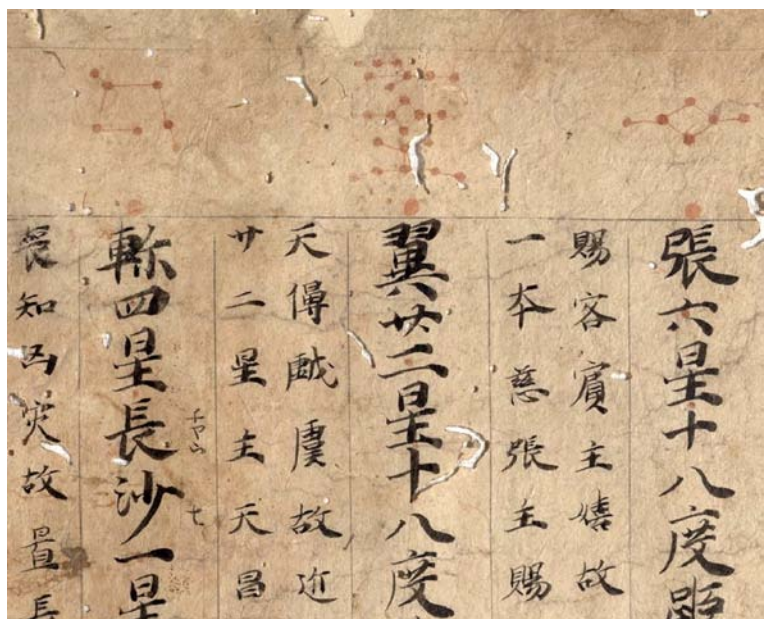 張六星十八度距
賜客賓主嬉故
一夲慈張主賜
翼廿二星十八度
天戯虞故近
廿二星主天昌
軫四星長沙一星
知凶灾故置長